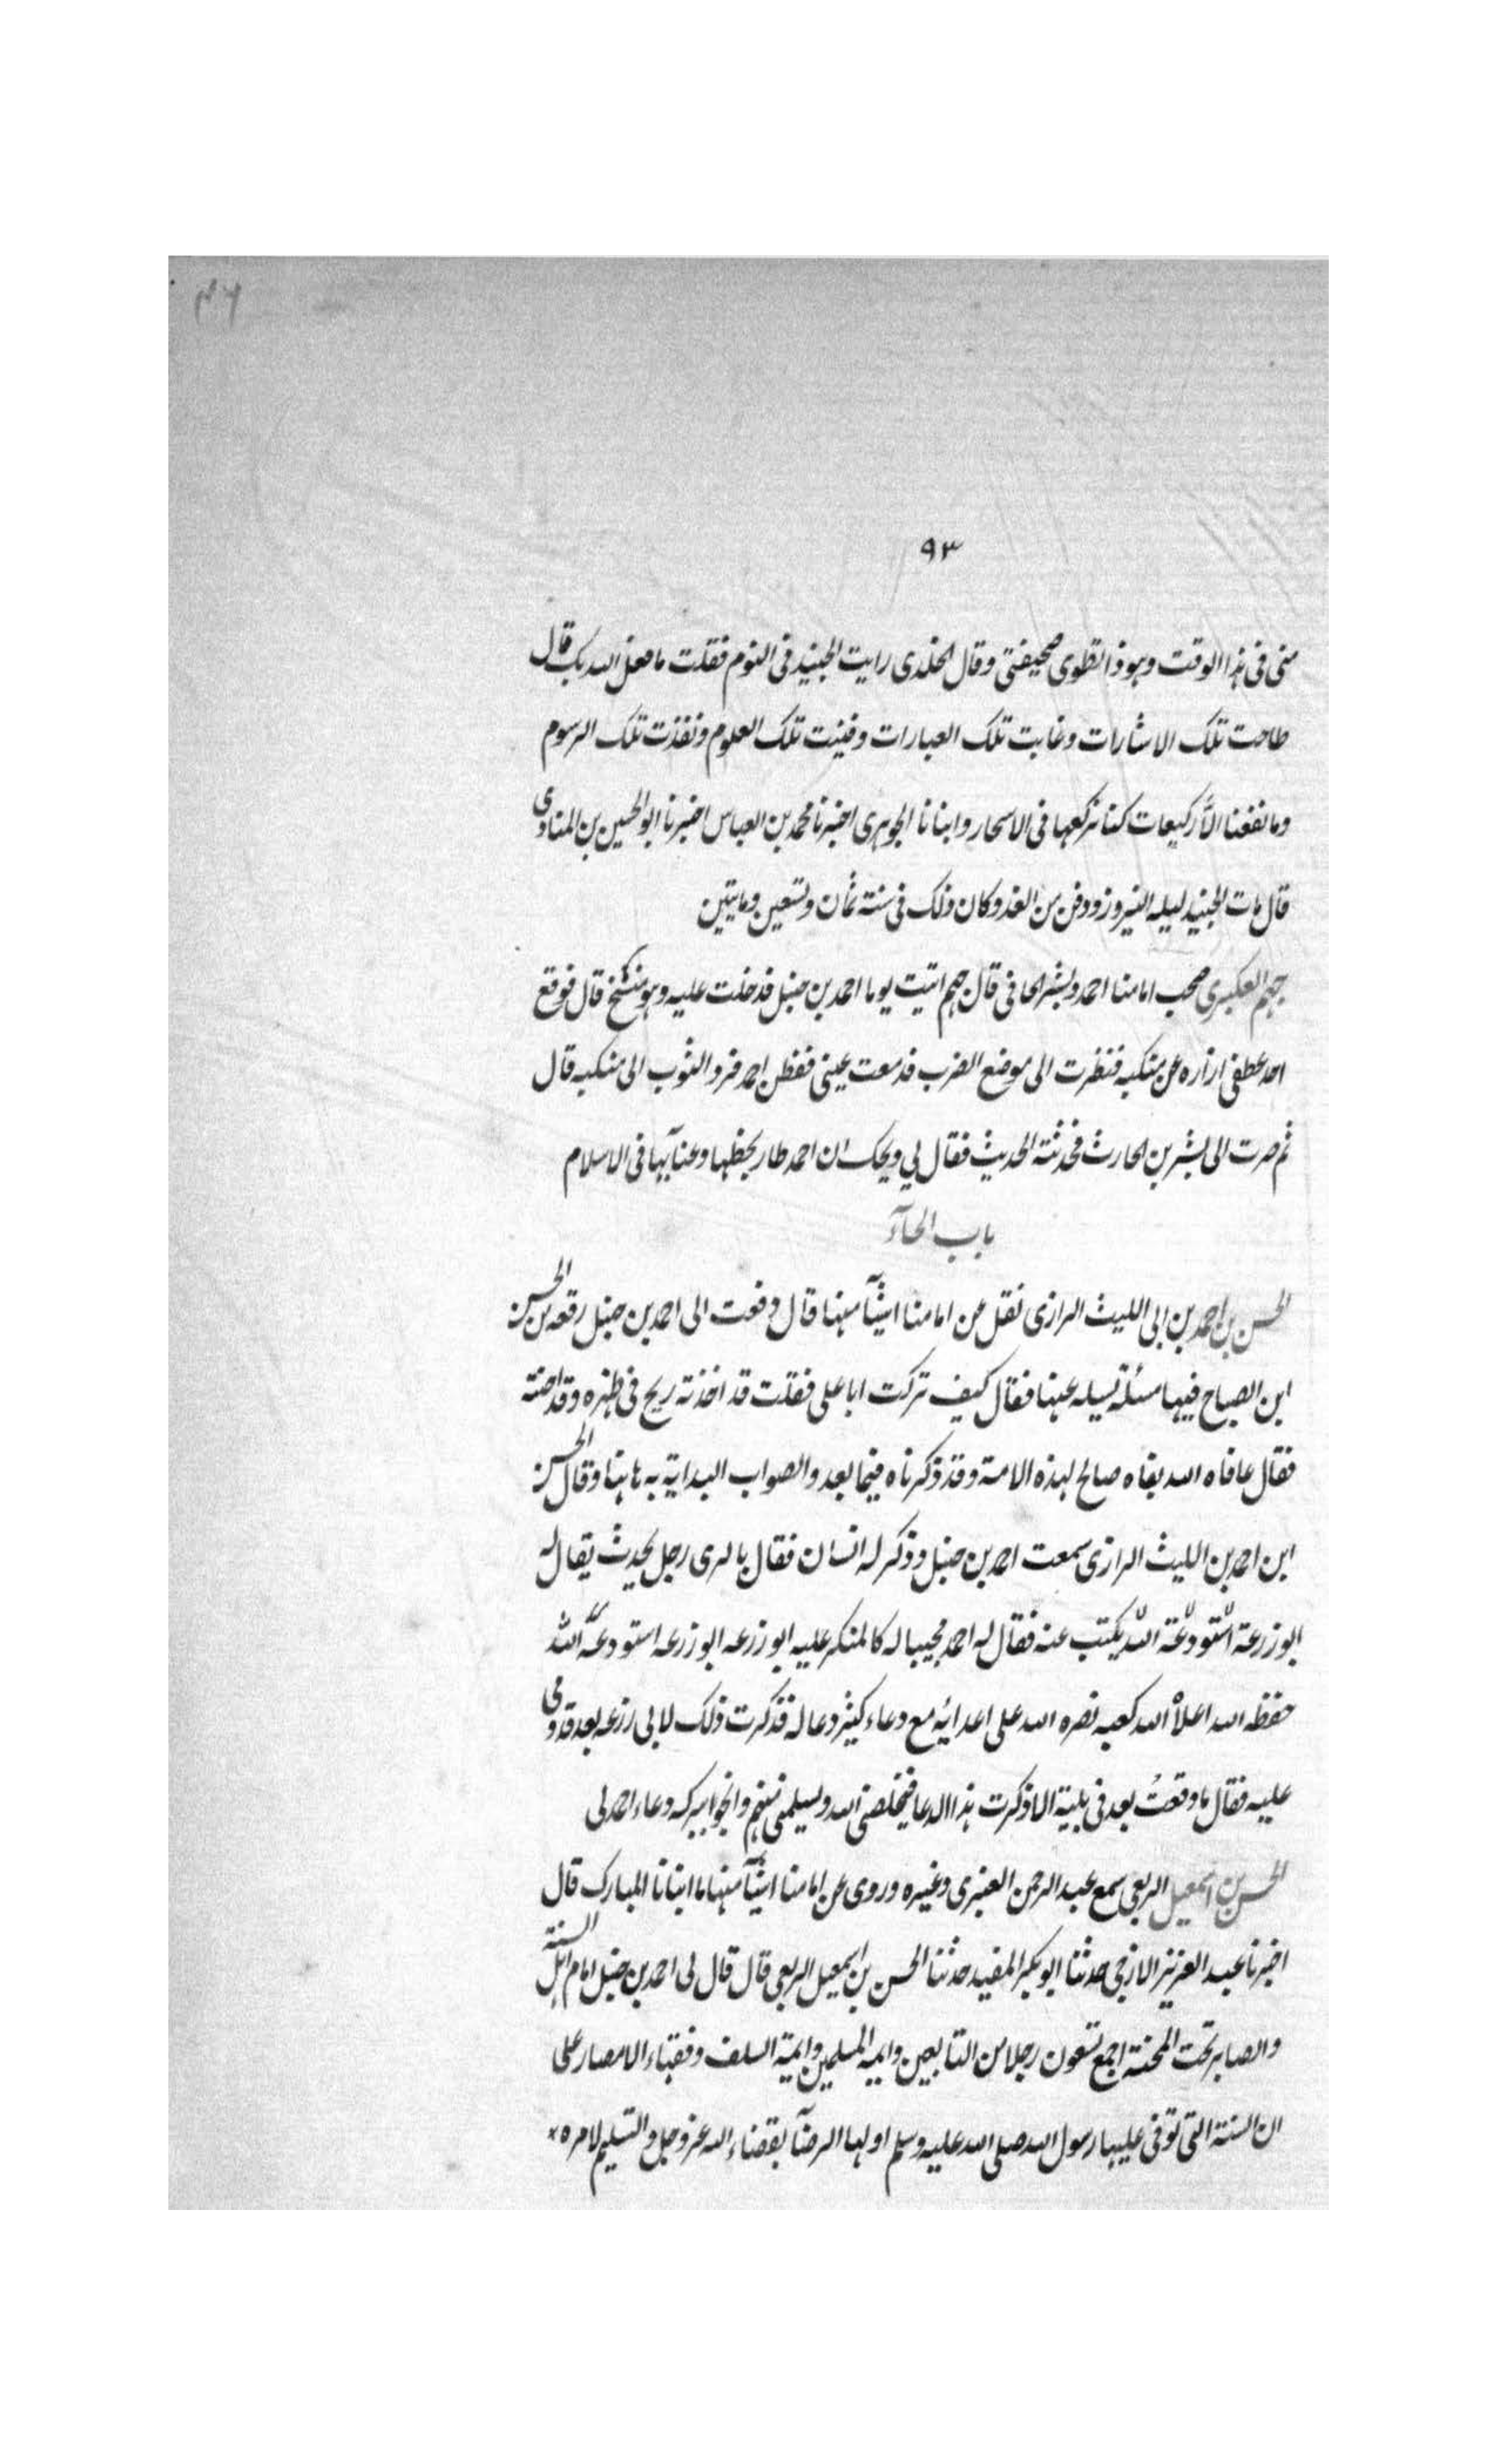 ٤٦
٩٣
منى فى هذا الوقت وهوذا تطوى صحيفتى وقال الخلدى رايت الجنيد فى النوم فقلت ما فعل الله بك قال
طاحت تلك الاشارات وغابت تلك العبارات وفنيت تلك العلوم ونفذت تلك الرسوم
وما نفعنا الّا ركيعات كنا نركعها فى الاسحار وانبانا الجوهرى اخبرنا محمد بن العباس اخبرنا ابو الحسين بن المنادى
قال مات الجنيد ليله النيروز ودفن من الغد وكان ذلك فى سنة ثمان وتسعين ومايتين
جهم العكبرى صحب امامنا احمد وبشر الحافى قال جهم اتيت يوما احمد بن حنبل فدخلت عليه وهو متشح قال فوقع
احد عطفى ازاره عن منكبه فنظرت الى موضع الضرب فدمعت عينى ففطن احمد فرد الثوب الى منكبه قال
ثم صرت الى بشر بن الحارث فحدثته الحديث فقال لي ويحك ان احمد طار بحظها وعنايها فى الاسلام
باب الحآء
الحسن بن احمد بن ابى الليث الرازى نقل عن امامنا اشيآ منها قال دفعت الى احمد بن حنبل رقعه من الحسن
ابن الصباح فيها مسئلة يسيله عنها فقال كيف تركت ابا على فقلت قد اخذته ريح فى ظهره وقد احنته
فقال عافاه الله بقاه صالح لهذه الامة وقد ذكرناه فيما بعد والصواب البداية به هاهنا وقال الحسن
ابن احمد بن الليث الرازى سمعت احمد بن حنبل وذكر له انسان فقال بالرى رجل يحدث يقال له
ابو زرعة استودعة الله يكتب عنه فقال له احمد مجيبا له كالمنكر عليه ابو زرعه ابو زرعه استودعه الله
حفظه الله اعلاه الله كعبه نصره الله على اعدائه مع دعاء كثير دعا له فذكرت ذلك لابى زرعه بعد قدومى
عليه فقال ما وقعتُ بعد فى بلية الا ذكرت هذا الدعا فيخلصنى الله ويسلمنى منهم وانجو ببركه دعاء احمد لى
الحسن بن اسمعيل الربعى سمع عبد الرحمن العنبرى وغيره وروى عن امامنا اشيآ منها ما انبانا المبارك قال
اخبرنا عبد العزيز الازجى حدثنا ابو بكر المفيد حدثنا الحسن بن اسمعيل الربعى قال قال لى احمد بن حنبل امام اهل السنة
والصابر تحت المحنة اجمع تسعون رجلا من التابعين وايمه المسلمين وايمة السلف وفقهاء الامصار على
ان السنة التى توفى عليها رسول الله صلى الله عليه وسلم اولها الرضآ بقضاء الله عز وجل والتسليم لامره